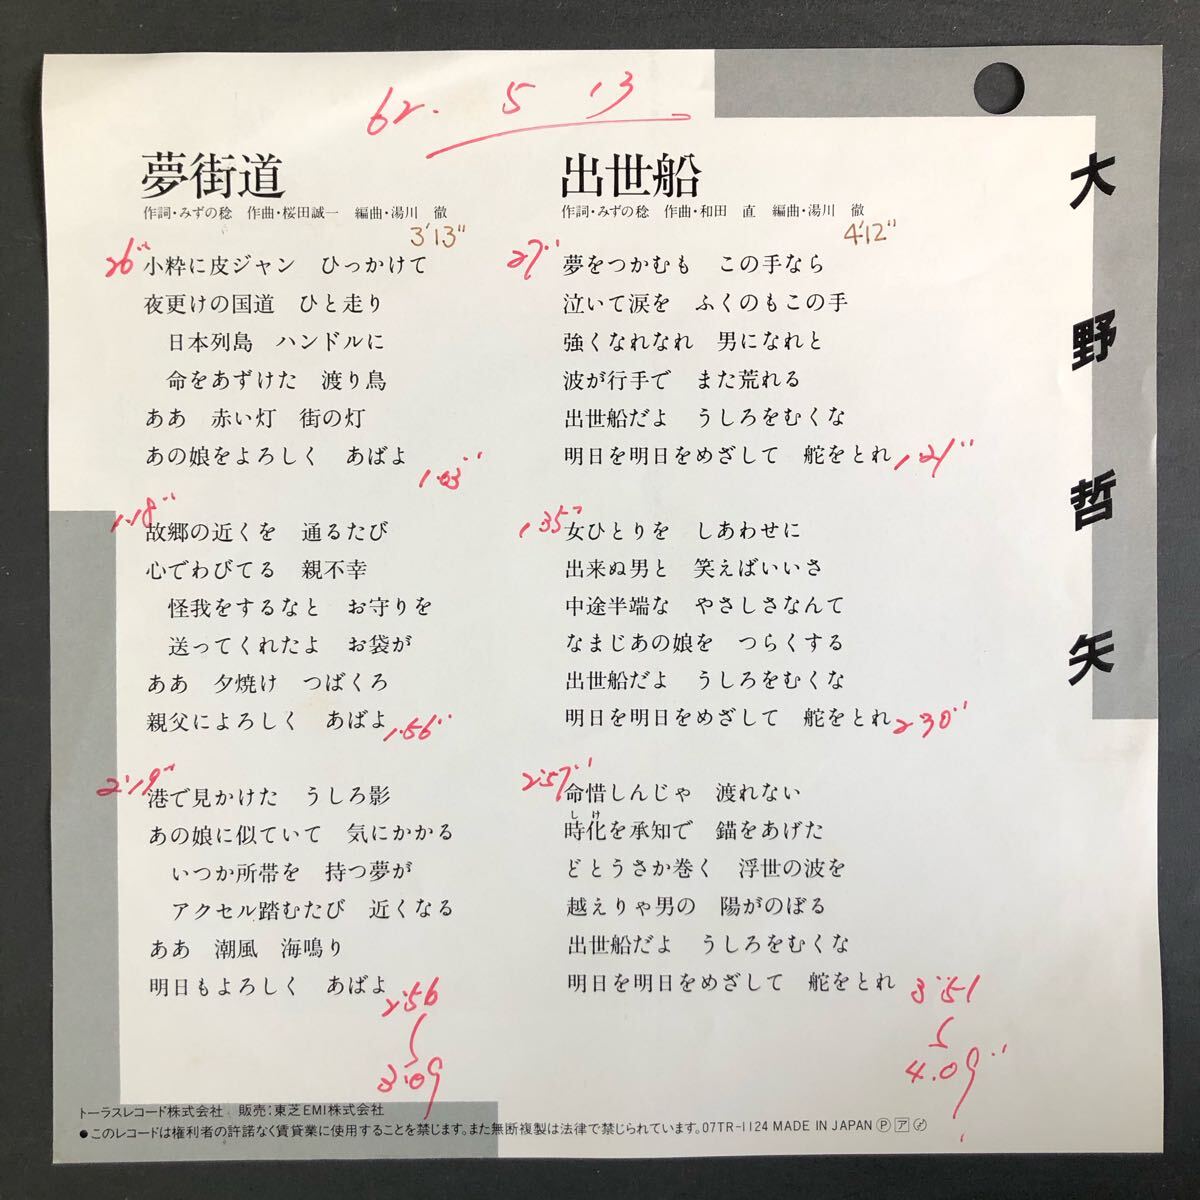 62. 5 13
夢街道
作詞・みずの稔 作曲・桜田誠一 編曲・湯川 徹
3'13"
26"
小粋に皮ジャン ひっかけて
夜更けの国道 ひと走り
日本列島 ハンドルに
命をあずけた 渡り鳥
ああ 赤い灯 街の灯
あの娘をよろしく あばよ
1.03"
1.18"
故郷の近くを 通るたび
心でわびてる 親不幸
怪我をするなと お守りを
送ってくれたよ お袋が
ああ 夕焼け つばくろ
親父によろしく あばよ
1.56"
2'19"
港で見かけた うしろ影
あの娘に似ていて 気にかかる
いつか所帯を 持つ夢が
アクセル踏むたび 近くなる
ああ 潮風 海鳴り
明日もよろしく あばよ
2'56
3'09
出世船
作詞・みずの稔 作曲・和田 直 編曲・湯川 徹
4'12"
27"
夢をつかむも この手なら
泣いて涙を ふくのもこの手
強くなれなれ 男になれと
波が行手で また荒れる
出世船だよ うしろをむくな
明日を明日をめざして 舵をとれ
1.21"
1.35"
女ひとりを しあわせに
出来ぬ男と 笑えばいいさ
中途半端な やさしさなんて
なまじあの娘を つらくする
出世船だよ うしろをむくな
明日を明日をめざして 舵をとれ
2 30"
2'57"
命惜しんじゃ 渡れない
しけ
時化を承知で 錨をあげた
どとうさか巻く 浮世の波を
越えりゃ男の 陽がのぼる
出世船だよ うしろをむくな
明日を明日をめざして 舵をとれ
3'51
4.09"
大野哲矢
トーラスレコード株式会社 販売:東芝EMI株式会社
●このレコードは権利者の許諾なく賃貸業に使用することを禁じます。また無断複製は法律で禁じられています。07TR-1124 MADE IN JAPAN Ⓟ ア